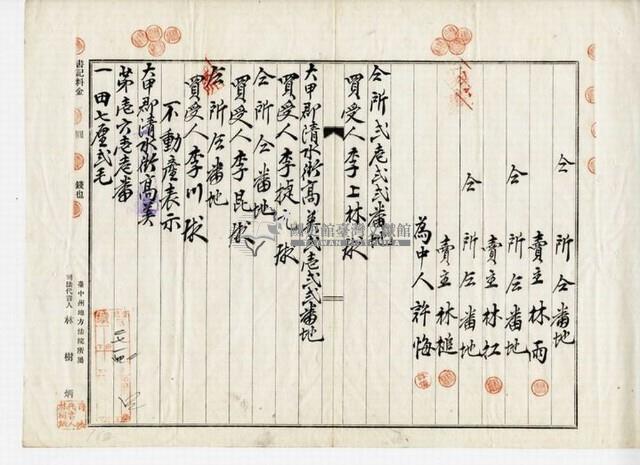 仝所仝番地
賣主林雨
仝所仝番地
賣主林江
仝所仝番地
賣主林槌
為中人許悔
仝所弍壱弍弍番地
買受人李上林
大甲郡清水街高美弍壱弍弍番地
買受人李
仝所仝番地
買受人李昆
仝所仝番地
買受人李川
不動產表示
大甲郡清水街高美
第壱六壱壱番
一田七厘弍毛
書記料金 圓 錢也
臺中州地方法院所屬
司法代書人 林樹炳
國史館臺灣文獻館
TAIWAN HISTORICA